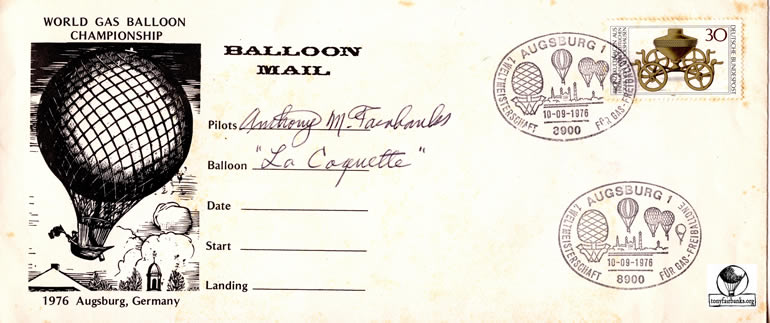 WORLD GAS BALLOON
CHAMPIONSHIP
BALLOON
MAIL
Pilots Anthony M. Fairbanks
Balloon "La Coquette"
Date
Start
Landing
1976 Augsburg, Germany
30
DEUTSCHE BUNDESPOST
AUGSBURG 1
1. WELTMEISTERSCHAFT FÜR GAS-FREIBALLONE
10-09-1976
8900
AUGSBURG 1
1. WELTMEISTERSCHAFT FÜR GAS-FREIBALLONE
10-09-1976
8900
tonyfairbanks.org